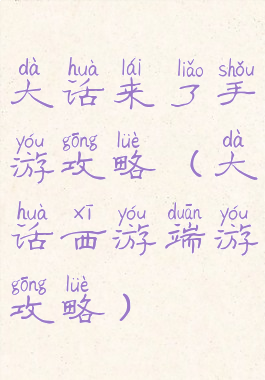 dà huà lái liǎo shǒu
大话来了手
yóu gōng lüè dà
游攻略(大
huà xī yóu duān yóu
话西游端游
gōng lüè
攻略)